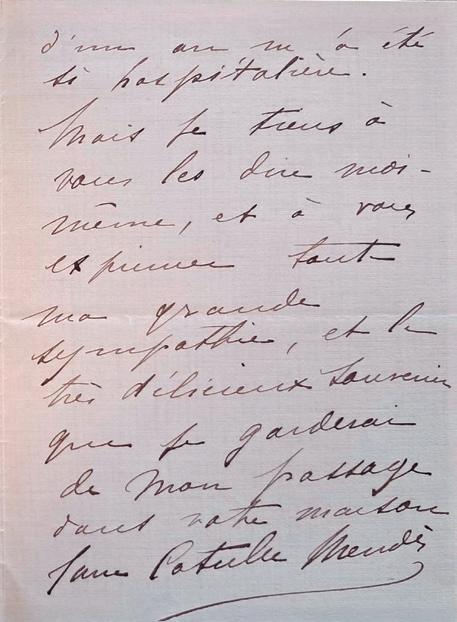 d'un an m'a été
si hospitalière.
Mais je tiens à
vous les dire moi-
même, et à vous
exprimer toute
ma grande
sympathie, et le
très délicieux souvenir
que je garderai
de mon passage
dans votre maison
Jane Catulle Mendès